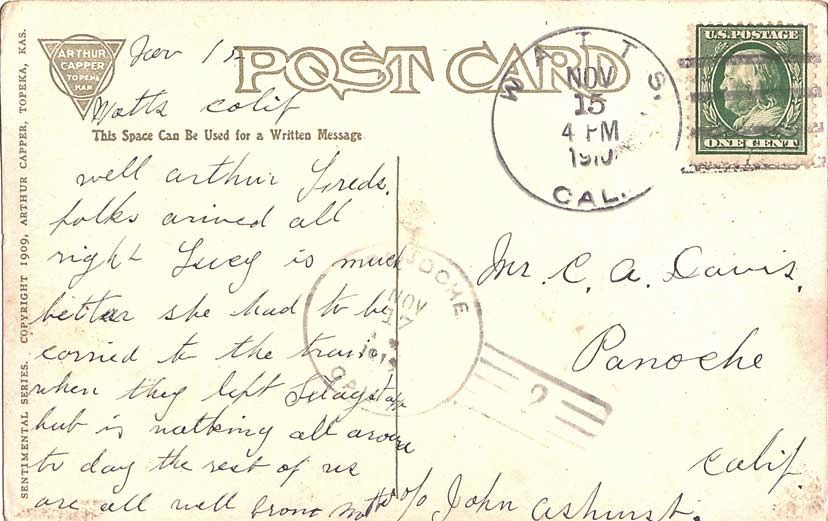 SENTIMENTAL SERIES. COPYRIGHT 1909, ARTHUR CAPPER, TOPEKA, KAS.
ARTHUR
CAPPER
TOPEKA
KAN
POST CARD
Nov 15
Watts Calif
This Space Can Be Used for a Written Message
well arthur Freds
folks arived all
right Lucy is much
better she had to be
carried to the train
when they left
but is walking all around
to day the rest of us
are all well from
WATTS
NOV
15
4 PM
1910
CAL.
U.S. POSTAGE
ONE CENT
PANOCHE
NOV
17
1910
CAL
2
Mr. C. A. Davis.
Panoche
Calif.
c/o John Ashurst.